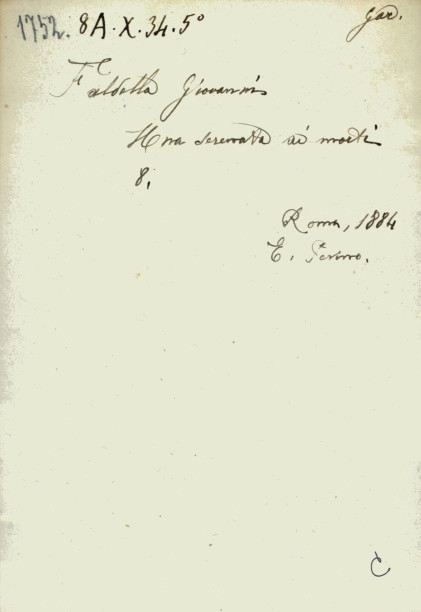 1752. 8A.X.34.5° Gar.
Faldella Giovanni
Una serenata ai morti
8.
Roma, 1884
E. Perino.
C